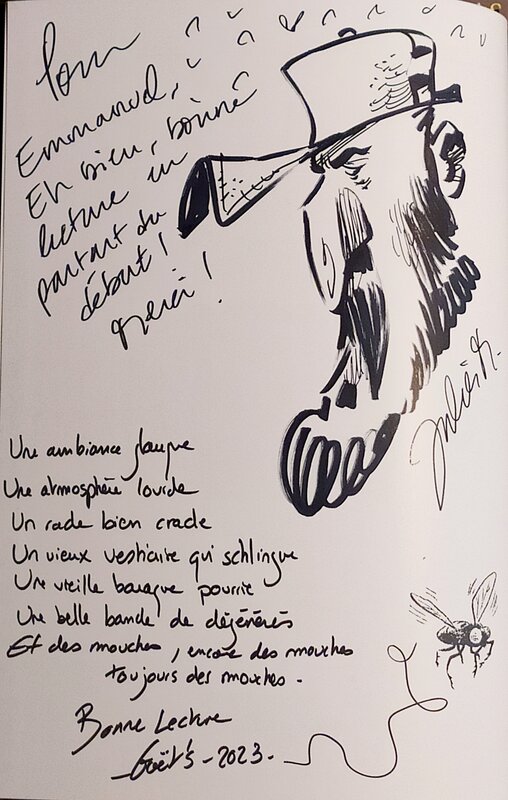 Pour
Emmanuel,
Eh bien, bonne
lecture en
partant du
début !
Merci !
Une ambiance glauque
Une atmosphère lourde
Un rade bien crade
Un vieux vestiaire qui schlingue
Une vieille baraque pourrie
Une belle bande de dégénérés
Et des mouches, encore des mouches
toujours des mouches.
Bonne Lecture
Goët's - 2023 -